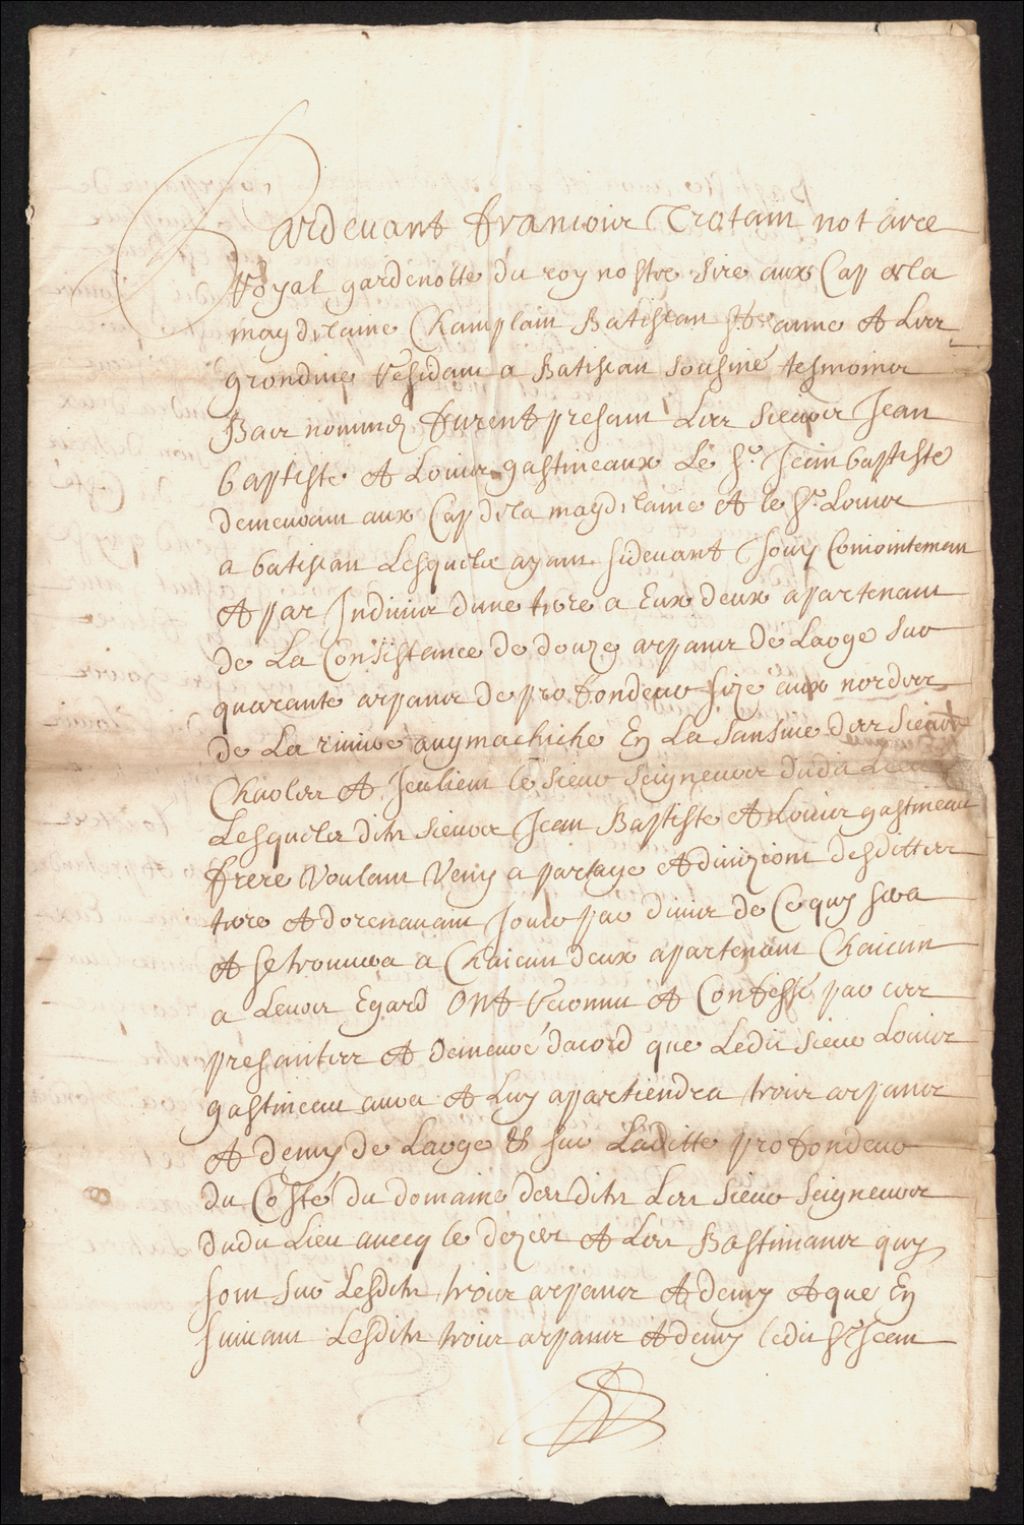 Pardevant francoiw Trotain notaire
Royal gardenotte du roy nostre sire aux Cap de la
magdelaine Champlain Batiscan Ste anne et Les
grondines residam a Batiscan sousiné tesmoins
Bas nommez furent presam Les sieurs Jean
baptiste et Louis gastineaux Le Sr. Jean baptiste
demeuram aux Cap de la magdelaine et le Sr. Louis
a batiscan Lesquels ayam sidevant Jouy Conointeman
et par Indivis dune terre a Eux deux apartenam
de La Consistance de douze arpans de Large sur
quarante arpans de profondeur size aux nordes
de La riviere ouymachiche En La sansive des sieurs
Charles et Jeulien le sieur seigneurs dudit
Lesquels dits sieurs Jean Baptiste et Louis gastineau
frere Voulam Veny a partage et divizions desdittes
terre et dorenavam Jouir par divis de Ce quy sera
et se trouvera a Chaicun deux apartenam Chaicun
a Leurs Egard Ont reconnu et Confessé par ces
presantes et demeuré dacord que Ledit sieur Louis
gastineau aura et Luy apartiendra trois arpans
et demy de Large et sur Laditte profondeur
du Costé du domaine des dits Les sieur seigneurs
dudit Lieu avecq le dezers et Les Bastimans quy
som sur Lesdits trois arpans et demy et que En
suivam Lesdits trois arpans et demy ledit Sr Jean